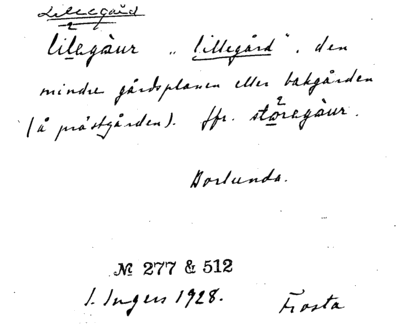 Lillegård
lilegàur „lillegård“, den
mindre gårdsplanen eller bakgården
(å prästgården). Jfr. storegàur.
Borlunda.
№ 277 & 512
I. Ingers 1928.
Frosta